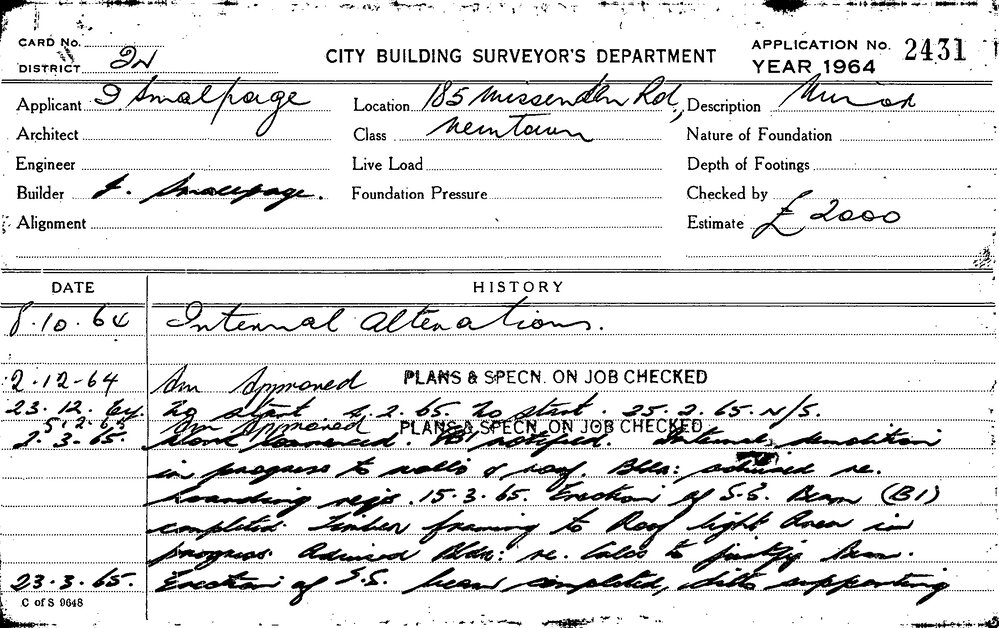 CARD No.
DISTRICT
CITY BUILDING SURVEYOR'S DEPARTMENT
APPLICATION No. 2431
YEAR 1964
Applicant J Smalpage Location 185 Missenden Rd., Description Minor
Architect Class Newtown Nature of Foundation
Engineer Live Load Depth of Footings
Builder J. Smallpage. Foundation Pressure Checked by
Alignment Estimate £ 2000
DATE HISTORY
8.10.64 Internal Alterations.
2.12-64 Am Approved PLANS & SPECN. ON JOB CHECKED
23.12.64. No start. 4.2.65. No start. 25.2.65. N/S.
5.2.65 Am Approved PLANS & SPECN. ON JOB CHECKED
2.3.65. Work commenced. notified. Internal demolition
in progress to walls & roof. Bldr: advised re.
hoarding regs. 15.3.65. Erection of S.S. Beam (B1)
completed. Timber framing to Roof light Area in
progress. Advised Bldr: re. Calcs to justify beam.
23.3.65. Erection of S.S. beam completed, ditto supporting
C of S 9648